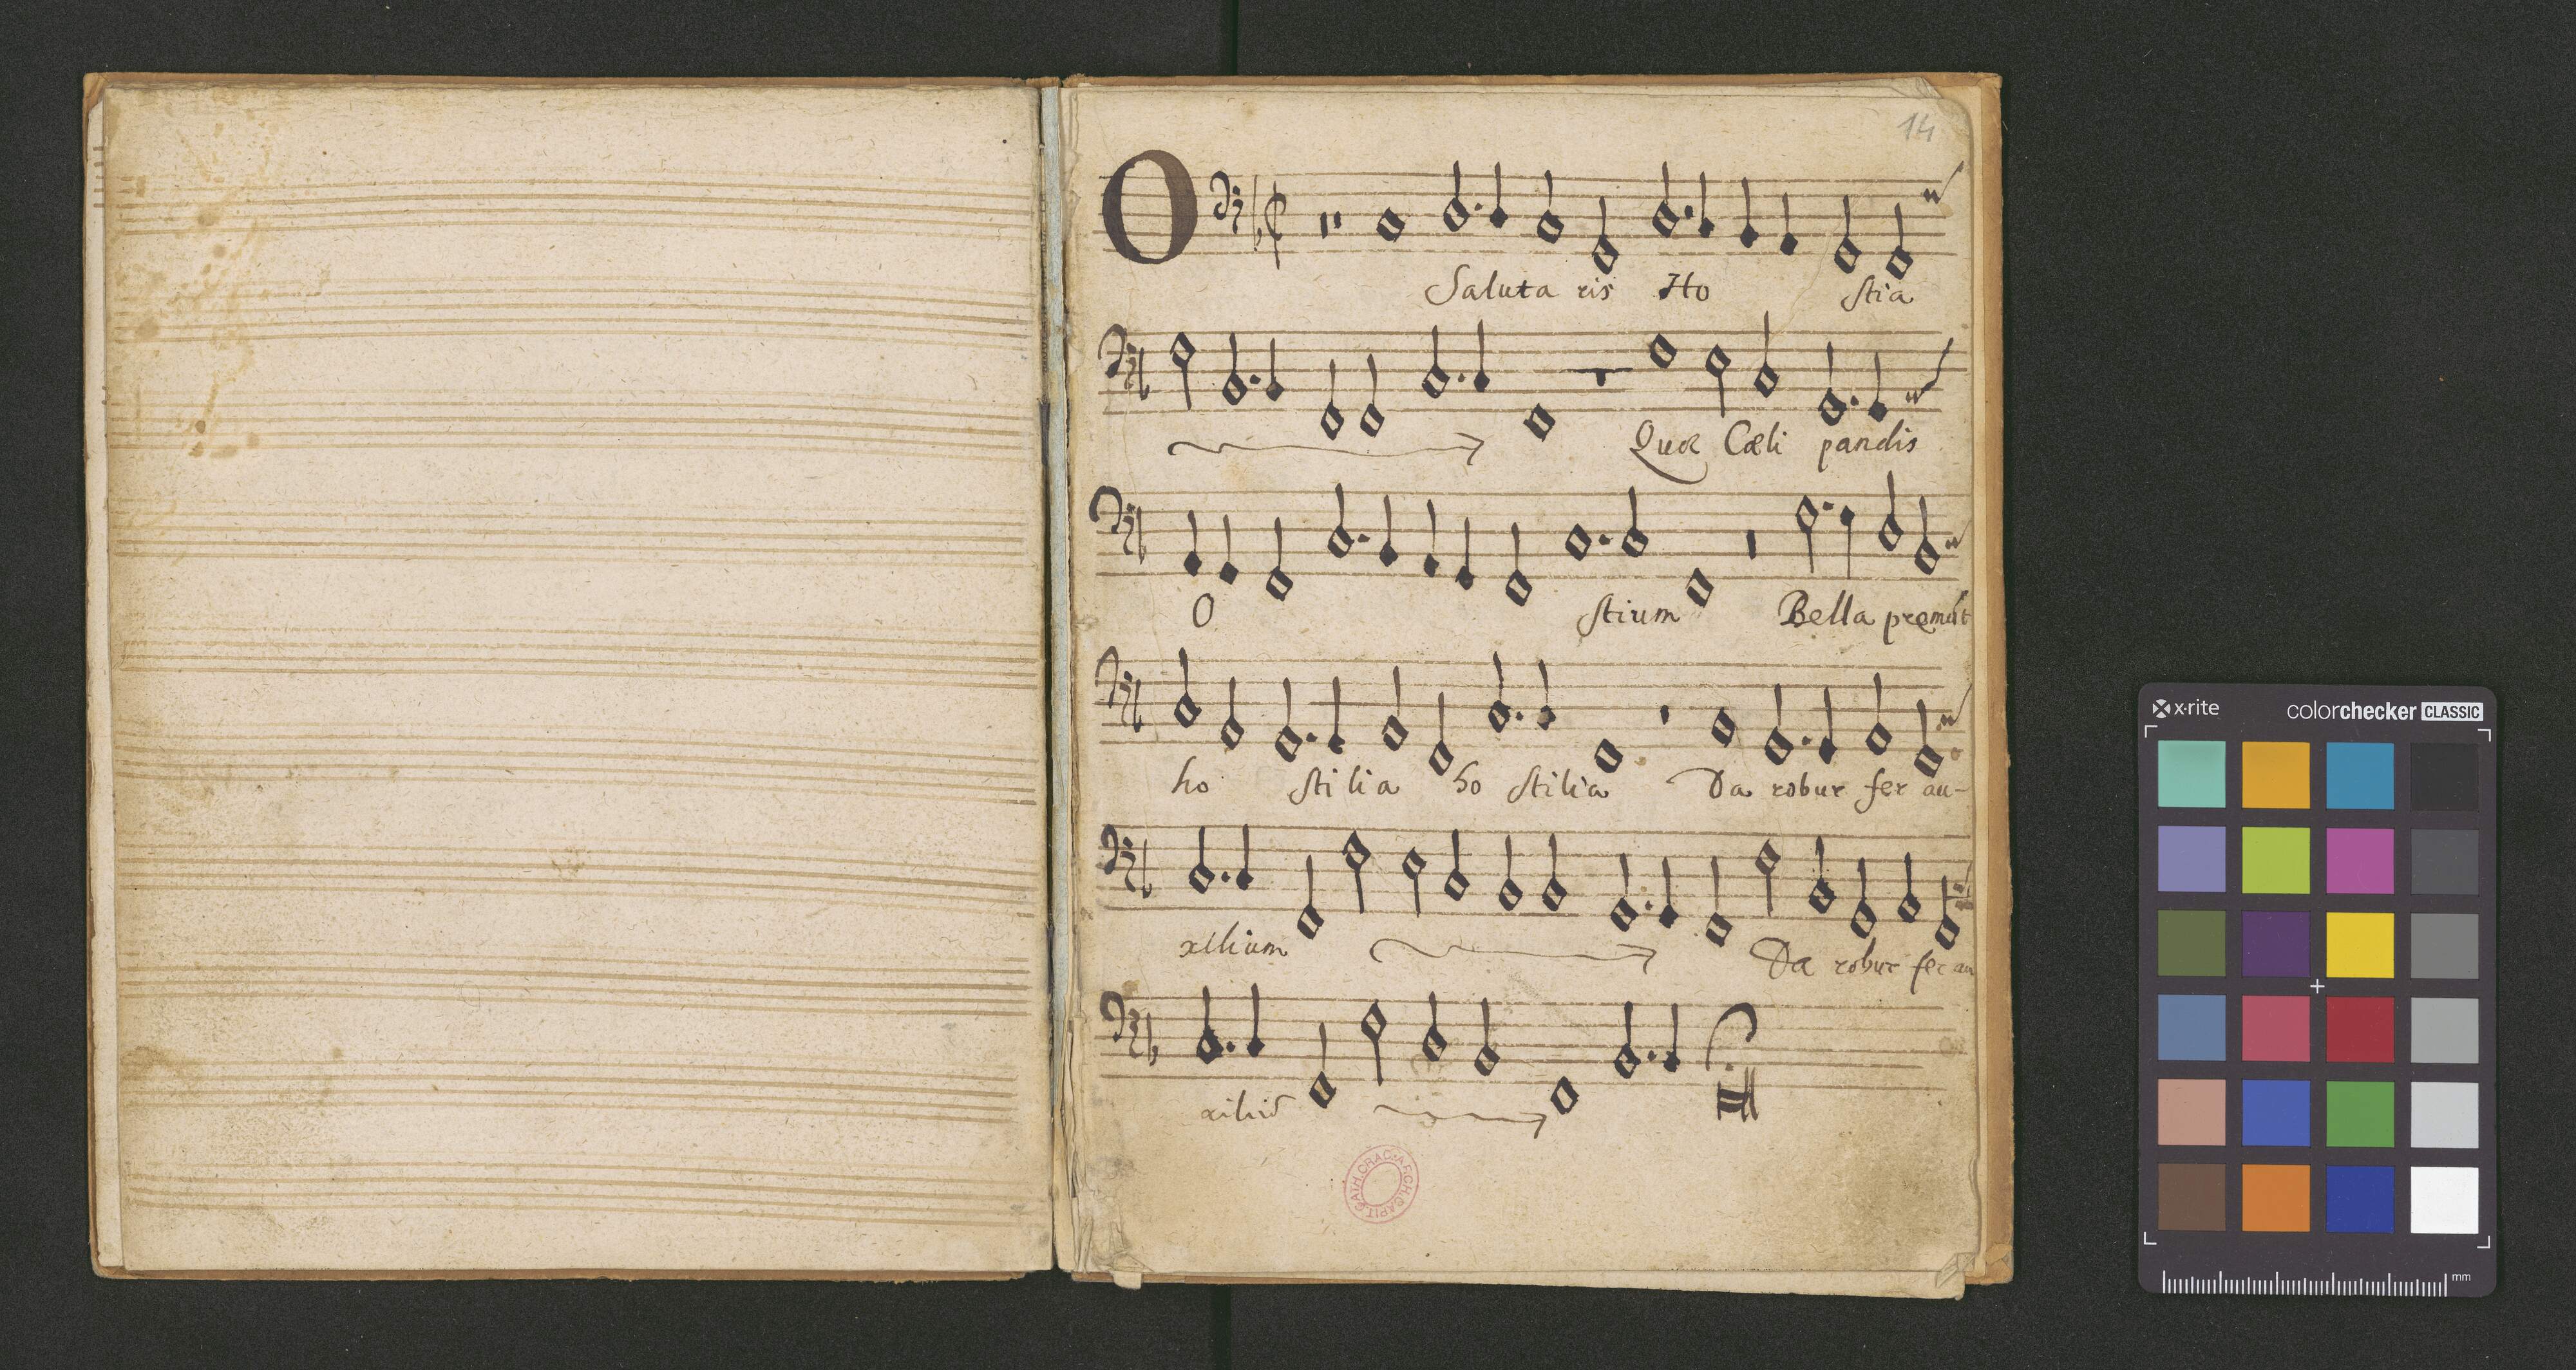 14
O
Saluta ris Ho stia
Quæ Cæli pandis
O stium Bella premūt
ho stilia ho stilia Da robur fer au-
xilium Da robur fer au
xiliū
CATH.CRAC.ARCH.CAPIT.
x-rite
colorchecker CLASSIC
mm